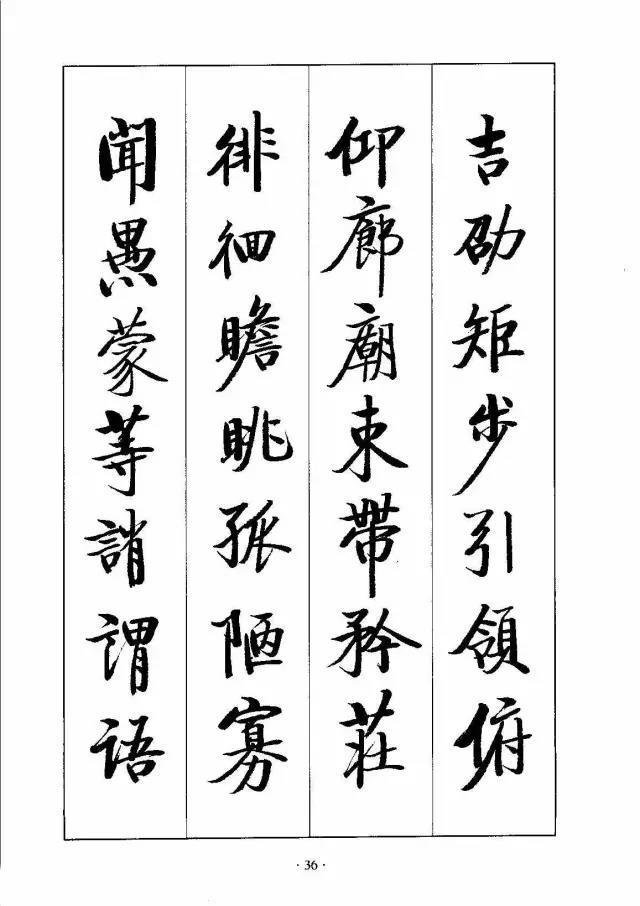 吉劭矩步引領俯
仰廊廟束帶矜莊
徘徊瞻眺孤陋寡
聞愚蒙等誚謂語
·36·